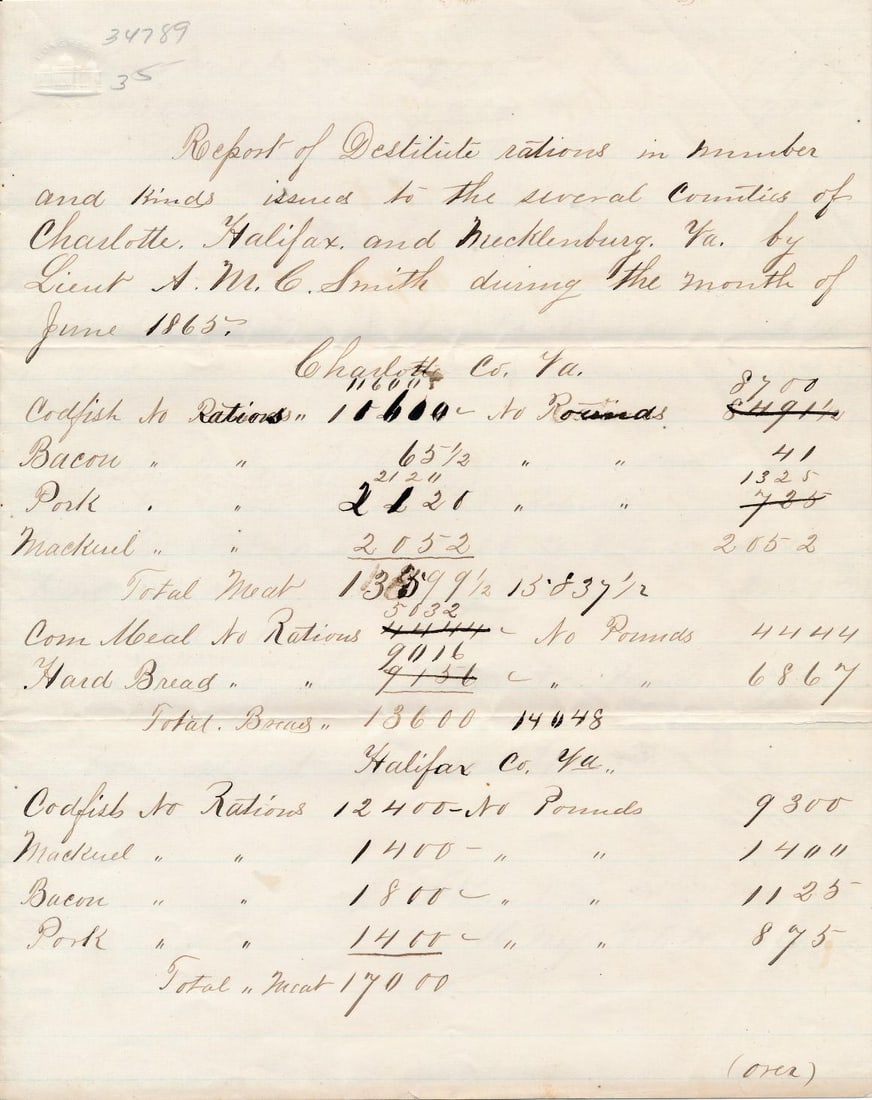 34789
35
Report of Destitute rations in number
and kinds issued to the several Counties of
Charlotte. Halifax. and Mecklenburg. Va. by
Lieut A. M. C. Smith during the month of
June 1865.
Charlotte Co. Va.
11600 8700
Codfish No Rations " 11600 - No Pounds 8491½
Bacon " " 65½ " " 41
2120 1325
Pork " " 2120 " " 725
Mackerel " " 2052 2052
Total Meat 13599½ 15837½
5032
Corn Meal No Rations 4444 - No Pounds 4444
9016
Hard Bread " " 9156 - " " 6867
Total. Bread " 13600 14048
Halifax Co. Va "
Codfish No Rations 12400 - No Pounds 9300
Mackerel " " 1400 - " " 1400
Bacon " " 1800 - " " 1125
Pork " " 1400 - " " 875
Total " Meat 17000
(over)